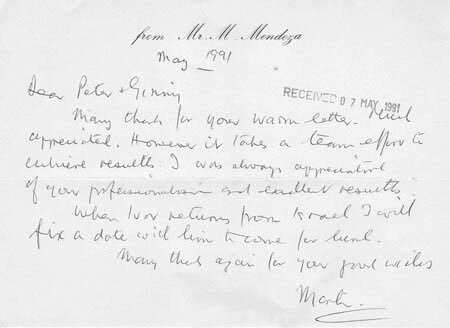 from Mr. M. Mendoza
May 1991
Dear Peter & Ginny
RECEIVED 07 MAY 1991
Many thanks for your warm letter. Much
appreciated. However it takes a team effort to
achieve results. I was always appreciative
of your professionalism and excellent results.
When Ivor returns from Israel I will
fix a date with him to come for lunch.
Many thanks again for your good wishes
Martin.